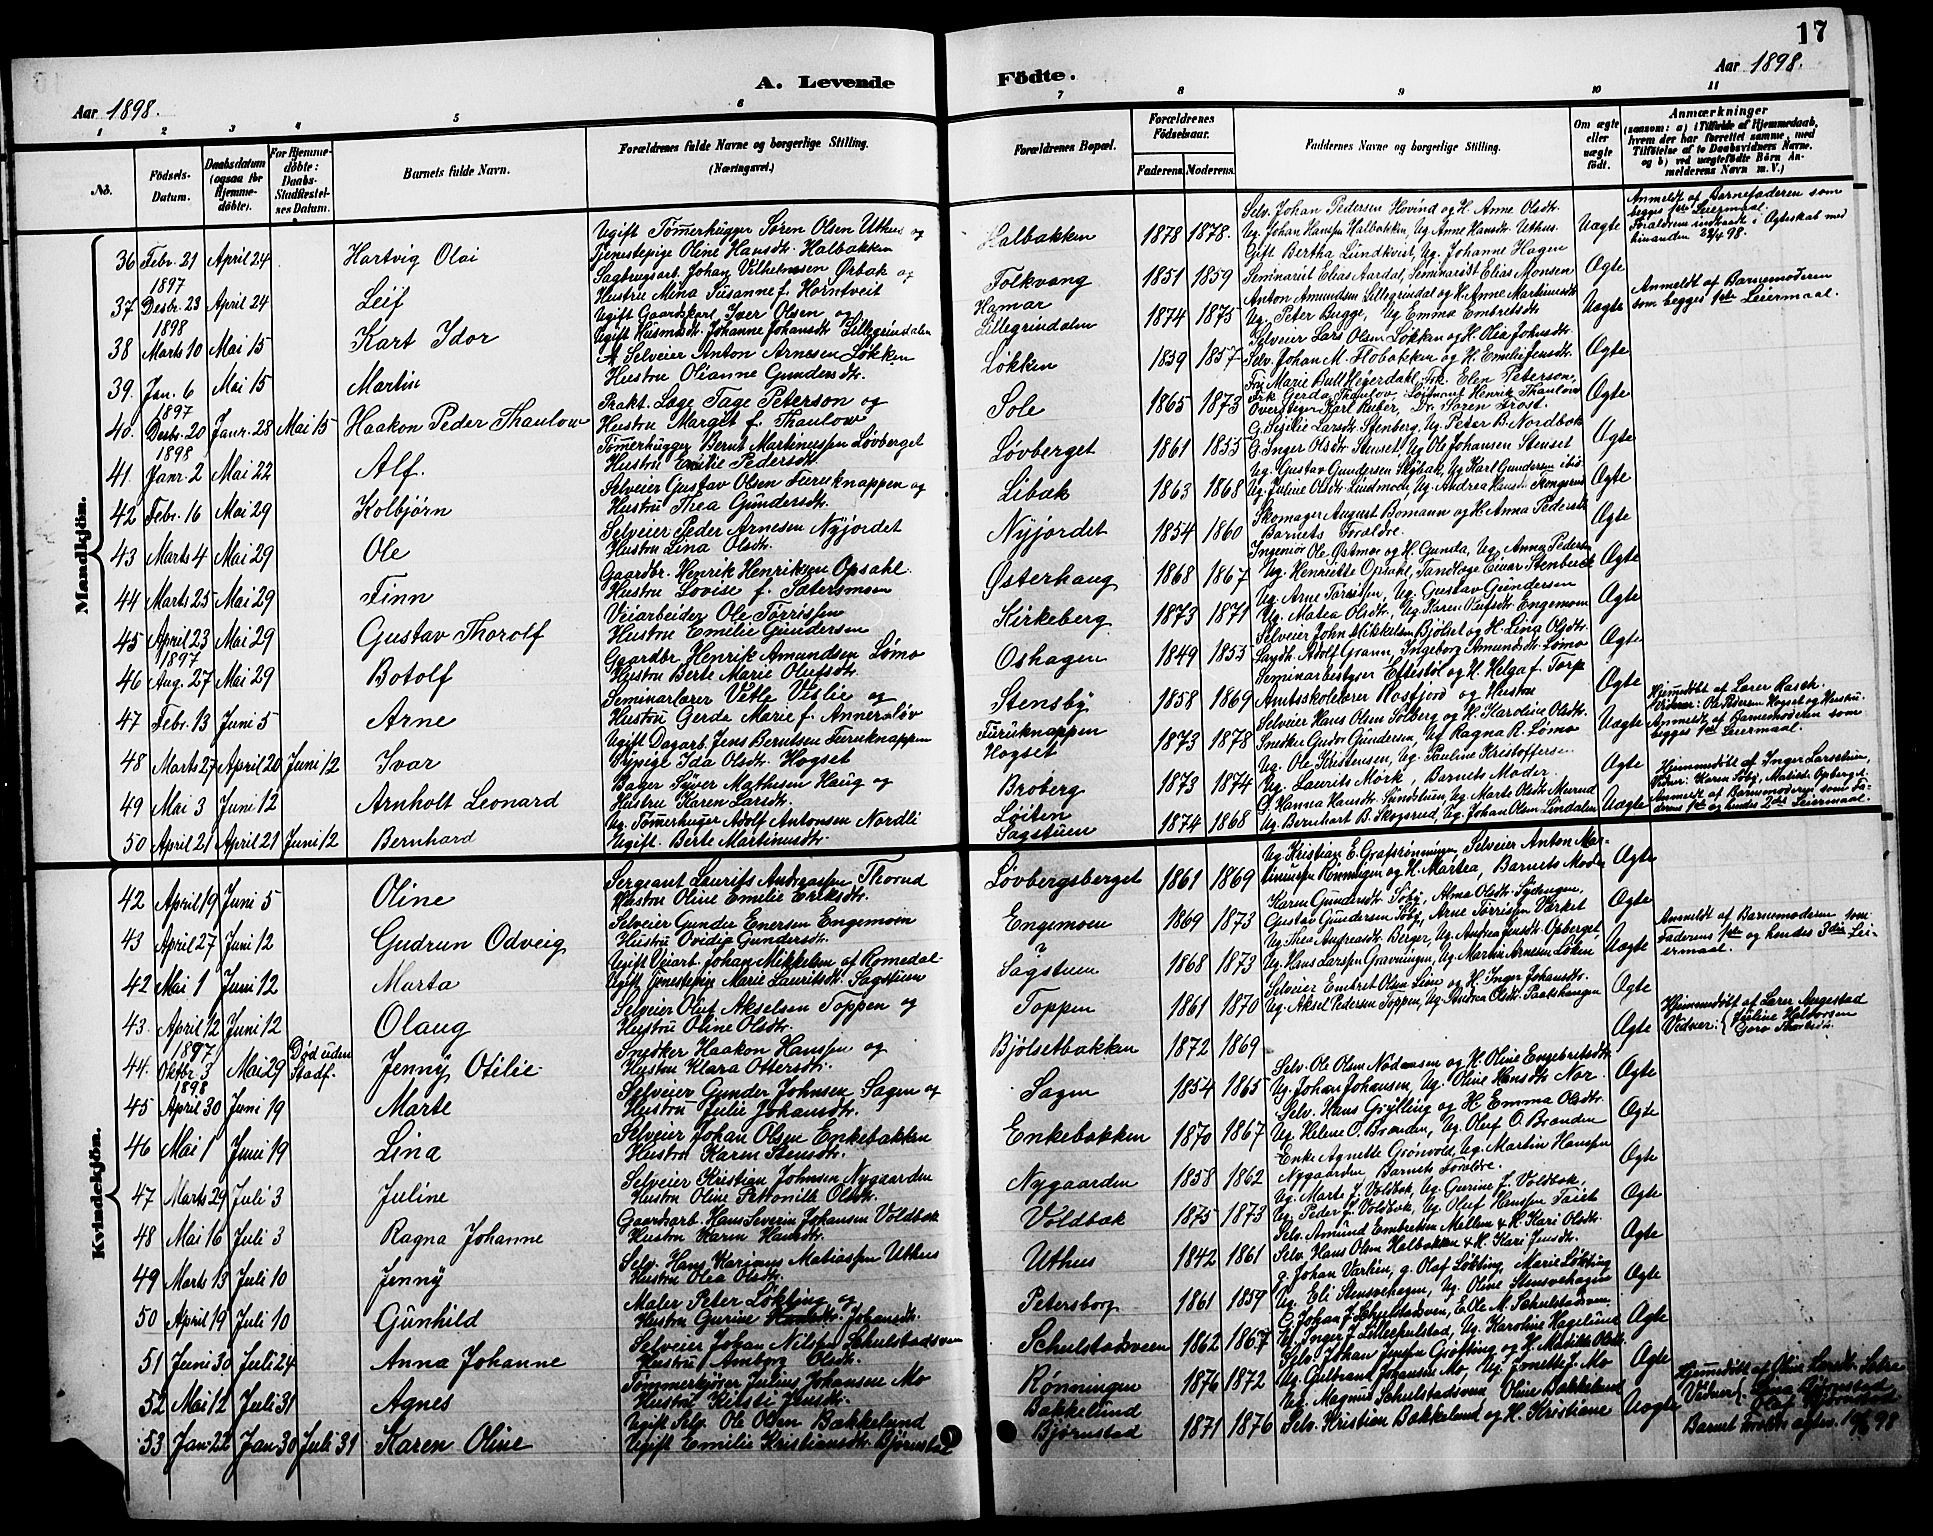 17
A. Levende Födte.
Aar 1898.
Aar 1898.
1 2 3 4 5 6 7 8 9 10 11
No.
Födsels-Datum.
Daabsdatum (ogsaa for Hjemmedöbte).
For Hjemmedöbte: Daabs-Stadfæstelses Datum.
Barnets fulde Navn.
Forældrenes fulde Navne og borgerlige Stilling. (Næringsvei.)
Forældrenes Bopæl.
Forældrenes Födselsaar.
Faderens. Moderens.
Faddernes Navne og borgerlige Stilling.
Om ægte eller uægte födt.
Anmærkninger (saasom: a) i Tilfælde af Hjemmedaab, hvem der har forrettet samme, med Tilföielse af to Daabsvidners Navne, og b) ved uægtefödte Börn Anmelderens Navn m. V.)
Mandkjön.
36 Febr. 21 April 24 Hartvig Olai
Ugift Tømmerhugger Søren Olsen Uthus og
Tjenestepige Oline Hansdt. Halbakken
Halbakken 1878 1878.
Selv. Johan Pedersen Hovind og H. Anne Olsdt.
Ug. Johan Hansen Halbakken, Ug. Anne Hansdt. Uthus.
Uægte
Anmeldt af Barnefaderen som
begges 1ste Leiermaal.
Forældrene indtraadt i Ægteskab med
hinanden 22/4 98.
1897
37. Desbr. 23 April 24 Leif
Sagbrugsarb. Johan Vilhelmsen Ørbæk og
Hustru Mina Susanne f. Horntveit
Folkvang 1851 1859
Gift Bertha Lundkvist, Ug. Johanne Hagen
Seminarist Elias Aardal, Seminarist Elias Monsen
Ægte
1898
38 Marts 10 Mai 15 Kart Idor
Ugift Gaardskarl Iver Olsen og
Ugift Husmdt. Johanne Johansdt. Lillegrindalen
Hamar
Lillegrindalen 1874 1875
Anton Amundsen Lillegrindal og H. Anne Martinusdt.
Ug. Peter Bugge, Ug. Emma Embretsdt.
Uægte
Anmeldt af Barnemoderen
som begges 1ste Leiermaal.
39. Jan. 6 Mai 15 Martin
Selveier Anton Arnesen Løkken
Hustru Olianne Gundersdt.
Løkken 1859 1857
Selveier Lars Olsen Løkken og H. Olia Johnsdt.
Selv. Johan M. Flobakken og H. Emilie Jensdt.
Ægte
1897
40. Desbr. 20 Janr. 28 Mai 15 Haakon Peder Thaulow
Prakt. Læge Tage Peterson og
Hustru Margit f. Thaulow
Sole 1865 1873
Frk. Marie Bull Heyerdahl, Frk. Elen Peterson,
Frk. Gerda Thaulow, Løitnant Henrik Thaulow
Overstiger Karl Ruber, Dr. Søren Frost.
Ægte
1898
41. Janr. 2 Mai 22 Alf.
Tømmerhugger Bernt Martinussen Løvberget
Hustru Emilie Pedersdt.
Løvberget 1861 1855
G. Sesilie Larsdt. Stenberg, Ug. Peter B. Nordbæk
G. Inger Olsdt. Stenset, Ug. Ole Johansen Stenset
Ægte
42 Febr. 16 Mai 29 Kolbjørn
Selveier Gustav Olsen Furuknappen og
Hustru Thea Gundersdt.
Libæk 1863 1868
Ug. Gustav Gundersen Skybak, Ug. Karl Gundersen ibid.
Ug. Juline Olsdt. Lindmoen, Ug. Andrea Hansdt. Skogsrud
Ægte
43 Marts 4 Mai 29 Ole
Selveier Peder Arnesen Nyjordet
Hustru Lina Olsdt.
Nyjordet 1854 1860
Skomager August Bomann og H. Anna Pedersdt.
Barnets Forældre.
Ægte
44 Marts 25 Mai 29 Finn
Gaardbr. Henrik Henriksen Opsahl.
Hustru Lovise f. Sætersmoen
Østerhaug 1868 1867
Ingeniør Ole Østmoe og H. Gunda, Ug. Anna Pedersen
Ug. Henriette Opsahl, Tandlæge Einar Stenberg
Ægte
45 April 23 Mai 29 Gustav Thorolf
Veiarbeider Ole Tørrissen
Hustru Emilie Gundersen
Kirkeberg 1873 1871
Ug. Arne Tørrissen, Ug. Gustav Gundersen
Ug. Matea Olsdt., Ug. Karen Olufsdt. Engemoen
Ægte
1897
46 Aug. 27 Mai 29 Botolf
Gaardbr. Henrik Amundsen Lømo
Hustru Berte Marie Olufsdt.
Oshagen 1849 1855
Selveier John Mikkelsen Bjølset og H. Lina Olsdt.
Sagdt. Adolf Grann, Ingeborg Amundsdt. Lømo
Ægte
47 Febr. 13 Juni 5 Arne
Seminarlærer Vetle Vislie og
Hustru Gerda Marie f. Annersløv
Stensby 1858 1869
Seminarbestyrer Eftestøl og H. Helga f. Torp
Amtsskolelærer Rosfjord og Hustru
Ægte
48 Marts 27 April 20 Juni 12 Ivar
Ugift Dagarb. Jens Berntsen Furuknappen
Ug. pige Ida Olsdt. Hogset
Furuknappen
Hogset 1873 1878
Selveier Hans Olsen Solberg og H. Karoline Olsdt.
Snedker Gudor Gundersen, Ug. Ragna R. Lømo
Uægte
Hjemmedøbt af Lærer Rasch.
Vidner: Ole Pedersen Hogset og Hustru.
Anmeldt af Barnemoderen som
begges 1ste Leiermaal.
49 Mai 3 Juni 12 Arnholt Leonard
Bager Syver Mathesen Haug og
Hustru Karen Larsdt.
Broberg 1873 1874
Ug. Ole Kristensen, Ug. Pauline Kristoffersen
Ug. Laurits Mørk, Barnets Moder.
Ægte
50 April 21 April 21 Juni 12 Bernhard
Ug. Tømmerhugger Adolf Antonsen Nordli
Ugift. Berte Martinusdt.
Løiten
Sagstuen 1874 1868
G. Hanna Hansdt. Sundstuen, Ug. Marte Olsdt. Murud
Ug. Bernhart B. Skogsrud, Ug. Johan Olsen Lindalen
Uægte
Hjemmedøbt af Inger Larsstuen,
Vidner: Karen Søby, Matilde Opberget.
Anmeldt af Barnemoderen som Fa-
derens 1ste og hendes 2det Leiermaal.
Kvindekjön.
42 April 19 Juni 5 Oline
Sergeant Laurits Andreassen Thorud
Hustru Oline Emilie Eriksdt.
Løvbergsberget 1861 1869
Ug. Kristian E. Grafsrønningen, Selveier Anton Mar-
tinussen Rønningen og H. Martea, Barnets Moder
Ægte
43 April 27 Juni 12 Gudrun Odveig
Selveier Gunder Enersen Engemoen
Hustru Ovidia Gundersdt.
Engemoen 1869 1873
Karen Gundersdt. Søby, Alma Olsdt. Sydengen,
Gustav Gundersen Søby, Arne Tørrissen Værket
Ægte
42 Mai 1 Juni 12 Marta
Ugift Veiarb. Johan Mikkelsen af Romedal
Ugift Tjenestepige Marie Lauritsdt. Sagstuen
?
Sagstuen 1868 1873
Ug. Thea Andreasdt. Berger, Ug. Andrea Jensdt. Opberget
Ug. Hans Larssen Gravningen, Ug. Martin Arnesen Løken
Uægte
Anmeldt af Barnemoderen som
Faderens 1ste og hendes 3die Lei-
ermaal.
43. April 12 Juni 12 Olaug
Selveier Oluf Akselsen Toppen og
Hustru Oline Olsdt.
Toppen 1861 1870
Selveier Embret Olsen Lien og H. Inger Johansdt.
Ug. Aksel Pedersen Toppen, Ug. Andrea Olsdt. Paatshaugen
Ægte
1897
44. Oktbr. 3 Mai 29 Død uden Stadf. Jenny Otilie
Snedker Haakon Hanssen og
Hustru Klara Ottersdt.
Bjølsetbakken 1872 1869
Ægte
Hjemmedøbt af Lærer Angestad
Vidner: Juline Halvorsen
Goro Thorkildt.
1898
45 April 30 Juni 19 Marte
Selveier Gunder Johnsen Sagen og
Hustru Julie Johansdt.
Sagen 1854 1865
Selv. Ole Olsen Nødaasen og H. Oline Engebretsdt.
Ug. Johan Johansen, Ug. Oline Hansdt. Nor.
Ægte
46 Mai 1 Juni 19 Lina
Selveier Johan Olsen Enkebakken
Hustru Karen Stensdt.
Enkebakken 1870 1867
Selv. Hans Grylling og H. Emma Olsdt.
Ug. Helene O. Brænden, Ug. Oluf O. Brænden
Ægte
47 Marts 29 Juli 3 Juline
Selveier Kristian Johnsen Nygaarden
Hustru Oline Pettonille Olsdt.
Nygaarden 1858 1862
Enke Agnette Grønvold, Ug. Martin Hanssen
Nygaarden, Barnets Forældre.
Ægte
48 Mai 16 Juli 3 Ragna Johanne
Gaardsarb. Hans Severin Johansen Voldbæk
Hustru Karen Hansdt.
Voldbæk 1875 1873
Ug. Marte J. Voldbæk, Ug. Gurine J. Voldbæk,
Ug. Peder J. Voldbæk, Ug. Oluf Hanssen Taiet
Ægte
49 Marts 13 Juli 10 Jenny
Selv. Hans Karinus Matiassen Uthus
Hustru Olea Olsdt.
Uthus 1842 1861
Selv. Amund Embretsen Mellem & H. Kari Olsdt.
Selv. Hans Olsen Halbakken & H. Kari Jensdt.
Ægte
50 April 19 Juli 10 Gunhild
Maler Peter Løkting og
Hustru Gurine Johansdt.
Petersborg 1861 1859
g. Johan Varlien, g. Olaf Løkting, Marie Løkting
Ug. Eli Stensvehagen, Ug. Oline Stensvehagen
Ægte
51 Juni 30 Juli 24 Anna Johanne
Selveier Johan Nilsen Schulstadsveen
Hustru Amborg Olsdt.
Schulstadsveen 1862 1867
E. Johan J. Schulstadsveen, E. Ole M. Schulstadsveen
Ug. Inger J. Lilleskulstad, Ug. Karoline Hagelund
Ægte
52 Mai 12 Juli 31 Agnes
Tømmerkjører Julius Johansen Mo
Hustru Kitsti Jensdt.
Rønningen 1876 1872
Selv. Johan Jensen Grøfting og H. Matilde Olsdt.
Ug. Gulbrand Johansen Mo, Ug. Ernette J. Mo
Ægte
53 Jan. 22 Jan. 30 Juli 31 Karen Oline
Ugift Selv. Ole Olsen Bakkelund
Ugift Emilie Kristiansdt. Bjørnstad
Bakkelund
Bjørnstad 1871 1876
Ug. Magnus Schulstadsveen, Oline Bakkelund
Selv. Kristian Bakkelund og H. Kristiane
Uægte
Hjemmedøbt af Oline Larsdt. Sætre
Vidner Bjørnstad
Olaf Bjørnstad
Barnet 19/6 98